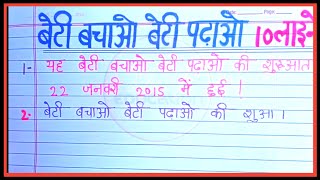 बेटी बचाओ बेटी पढ़ाओ 10लाइने
1- यह बेटी बचाओ बेटी पढाओ की शुरूआत
22 जनवरी 2015 में हुई !
2- बेटी बचाओ बेटी पढाओ की शुआ ।